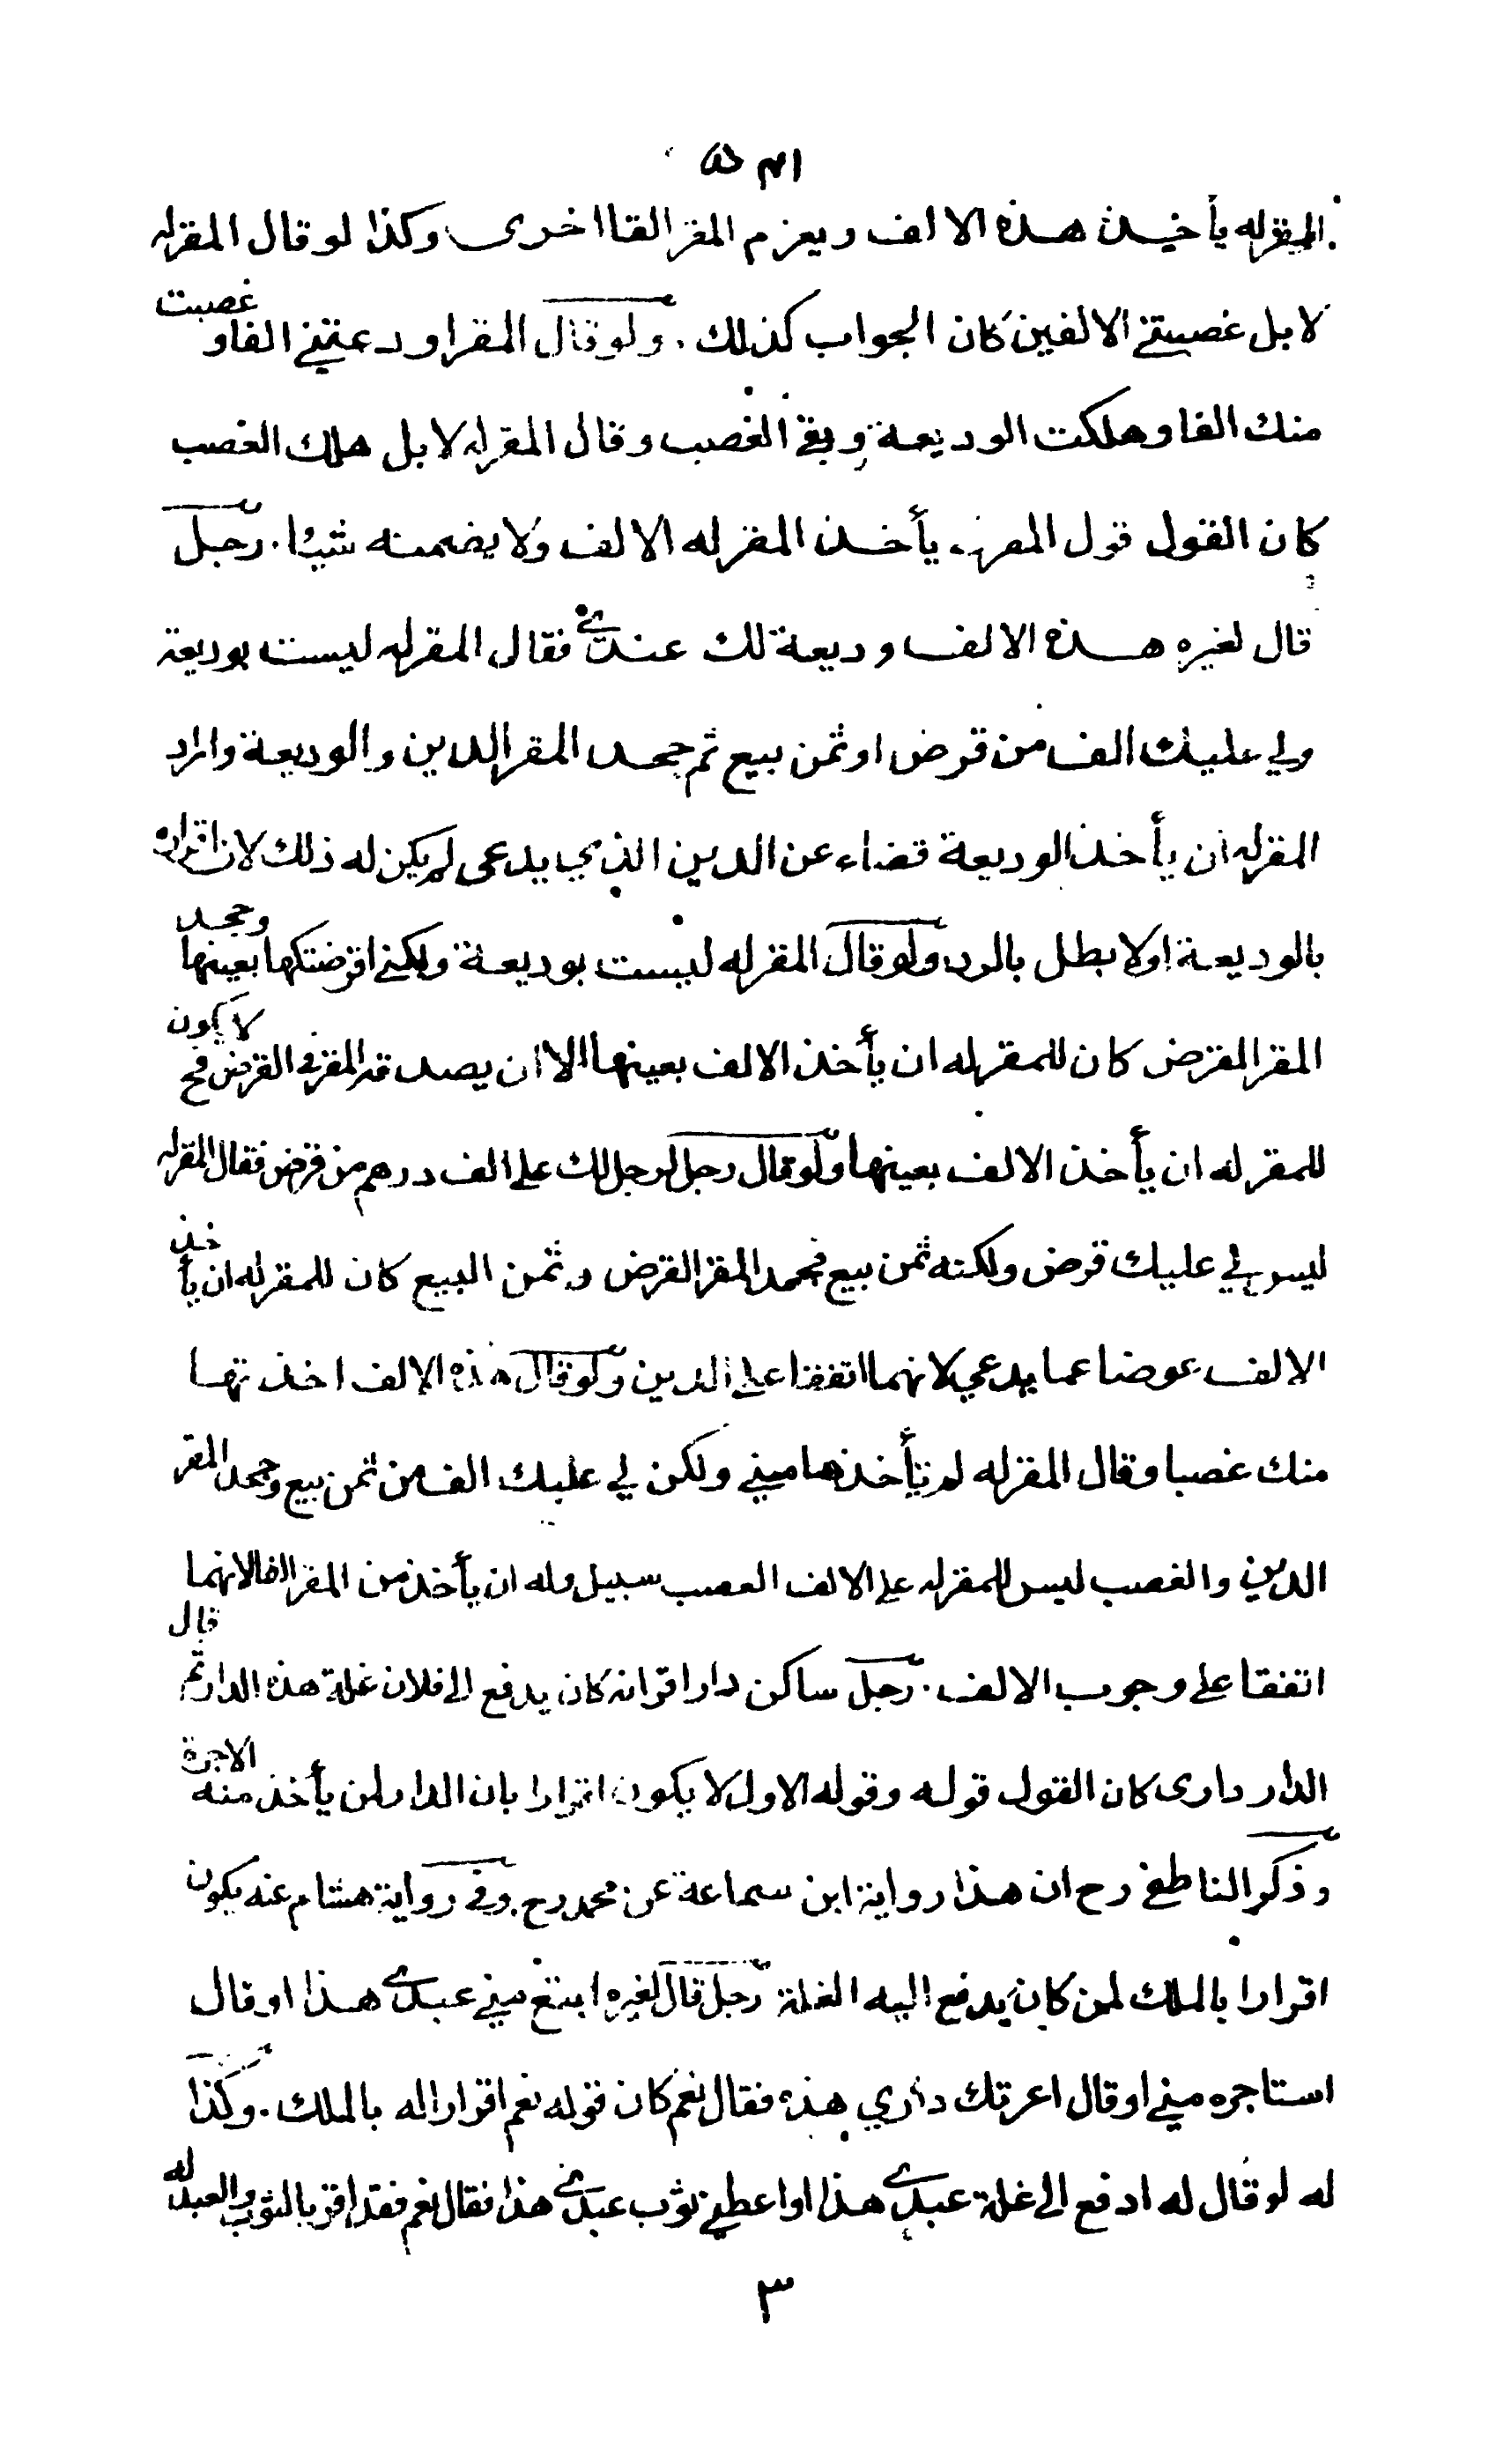 المقرله يأخذ هذه الالف ويغرم المقر الفا اخرى وكذا لو قال المقرله
لا بل غصبتني الالفين كان الجواب كذلك . ولو قال المقر اودعتني الفا و غصبت
منك الفا وهلكت الوديعة وبقي الغصب وقال المقرله لا بل هلك الغصب
كان القول قول المقرله يأخذ المقرله الالف ولا يضمنه شيئا . رجل
قال لغيره هذه الالف وديعة لك عندي فقال المقرله ليست بوديعة
ولي عليك الف من قرض او ثمن بيع ثم جحد المقر الدين والوديعة واراد
المقرله ان يأخذ الوديعة قضاء عن الدين الذي يدعي لم يكن له ذلك لان اقراره
بالوديعة اولا بطل بالرد ولو قال المقرله ليست بوديعة ولكني اقرضتكها بعينها وجحد
المقر القرض كان للمقرله ان يأخذ الالف بعينها الا ان يصدقه المقر في القرض فح لا يكون
للمقرله ان يأخذ الالف بعينها ولو قال رجل لرجل لك علي الف درهم من قرض فقال المقرله
ليس لي عليك قرض ولكنه ثمن بيع فجحد المقر القرض وثمن البيع كان للمقرله ان يأخذ
الالف عوضا عما يدعي لانهما اتفقا على الدين ولو قال هذه الالف اخذتها
منك غصبا وقال المقرله لم تأخذها مني ولكن لي عليك الف من ثمن بيع وجحد المقر
الدين والغصب ليس للمقرله على الالف الغصب سبيل وله ان يأخذ من المقر الفا لانهما
اتفقا على وجوب الالف . رجل ساكن دار اقر انه كان يدفع الى فلان غلة هذه الدار ثم قال
الدار داري كان القول قوله وقوله الاول لا يكون اقرارا بان الدار لمن يأخذ منه الاجرة
وذكر الناطفي رح ان هذا رواية ابن سماعة عن محمد رح وفي رواية هشام عنه يكون
اقرارا بالملك لمن كان يدفع اليه الغلة رجل قال لغيره ابتع مني عبدي هذا او قال
استاجره مني او قال اعرتك داري هذه فقال نعم كان قوله نعم اقرارا له بالملك . وكذا
له لو قال له ادفع الي غلة عبدي هذا او اعطني ثوب عبدي هذا فقال نعم فقد اقر بالثوب والعبد له
٣